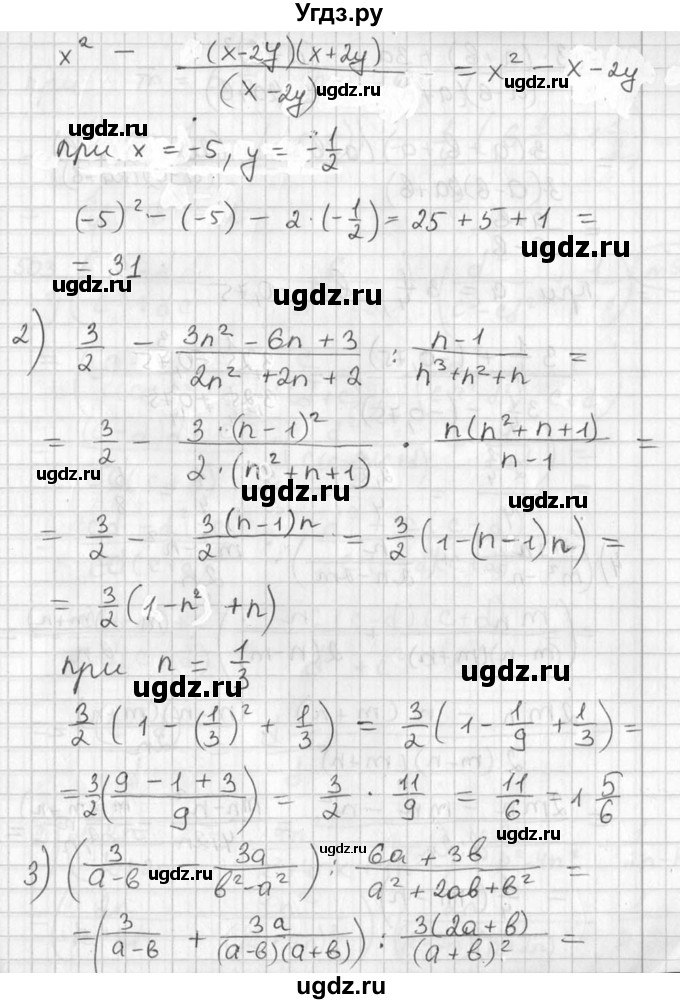 Угдз.ру
x² - (x-2y)(x+2y) / (x-2y) = x² - x - 2y
ugdz.ru
ugdz.ru
при x = -5, y = -1/2
(-5)² - (-5) - 2·(-1/2) = 25 + 5 + 1 =
ugdz.ru
= 31
ugdz.ru
ugdz.ru
2) 3/2 - (3n² - 6n + 3)/(2n² + 2n + 2) : (n-1)/(n³+n²+n) =
= 3/2 - 3·(n-1)²/(2·(n²+n+1)) · n(n²+n+1)/(n-1) =
ugdz.ru
ugdz.ru
ugdz.ru
= 3/2 - 3(n-1)n/2 = 3/2(1-(n-1)n) =
= 3/2(1-n² + n)
при n = 1/3
ugdz.ru
ugdz.ru
3/2(1 - (1/3)² + 1/3) = 3/2(1 - 1/9 + 1/3) =
= 3/2((9 - 1 + 3)/9) = 3/2 · 11/9 = 11/6 = 1 5/6
ugdz.ru
ugdz.ru
3) (3/(a-b) - 3a/(b²-a²)) : (6a + 3b)/(a² + 2ab + b²) =
ugdz.ru
= (3/(a-b) + 3a/((a-b)(a+b))) : 3(2a+b)/(a+b)² =
ugdz.ru